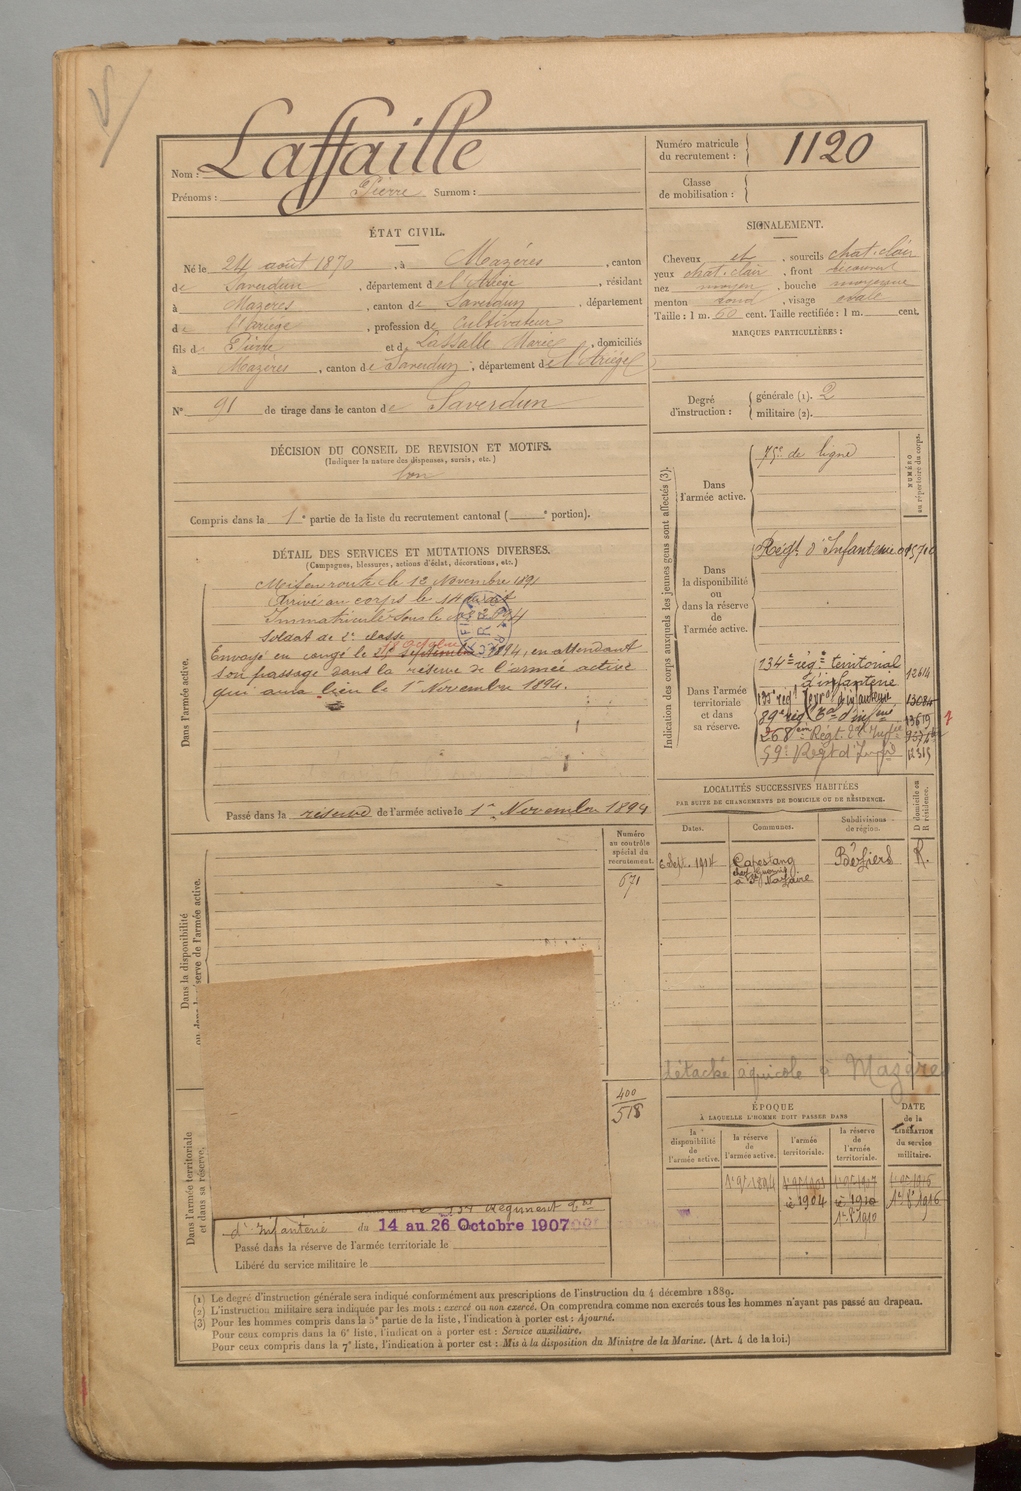 Laffaille
Nom :
Prénoms : Pierre Surnom :
Numéro matricule
du recrutement : 1120
Classe
de mobilisation :
ÉTAT CIVIL.
Né le 24 août 1870, à Mazères, canton
de Saverdun, département de l'Ariège, résidant
à Mazères, canton de Saverdun, département
de l'Ariège, profession de Cultivateur
fils de Pierre et de Lassalle Marie, domiciliés
à Mazères, canton de Saverdun, département de l'Ariège
N° 91 de tirage dans le canton de Saverdun
SIGNALEMENT.
Cheveux et, sourcils chat. clair
yeux chat. clair, front découvert
nez moyen, bouche moyenne
menton rond, visage ovale
Taille : 1 m. 60 cent. Taille rectifiée : 1 m. cent.
MARQUES PARTICULIÈRES :
Degré
d'instruction :
générale (1). 2
militaire (2).
DÉCISION DU CONSEIL DE REVISION ET MOTIFS.
(Indiquer la nature des dispenses, sursis, etc.)
bon
Compris dans la 1e partie de la liste du recrutement cantonal ( e portion).
DÉTAIL DES SERVICES ET MUTATIONS DIVERSES.
(Campagnes, blessures, actions d'éclat, décorations, etc.)
Dans l'armée active.
Mis en route le 12 Novembre 1891
Arrivé au corps le 14 dudit
Immatriculé sous le
Soldat de 2e classe
Envoyé en congé le 1894, en attendant
son passage dans la réserve de l'armée active
qui aura lieu le 1er Novembre 1894.
Passé dans la réserve de l'armée active le 1er Novembre 1894
Indication des corps auxquels les jeunes gens sont affectés (3).
NUMÉRO
au répertoire du corps.
Dans
l'armée active.
75e de ligne
Dans
la disponibilité
ou
dans la réserve
de l'armée active.
Régt d'Infanterie
Dans l'armée
territoriale
et dans
sa réserve.
134e régt territorial
d'infanterie 12614
13084
89e rég d'infrie 13619
268em Régt
59e Régt d'Infrie 12315
LOCALITÉS SUCCESSIVES HABITÉES
PAR SUITE DE CHANGEMENTS DE DOMICILE OU DE RÉSIDENCE.
Dates.
Communes.
Subdivisions
de région.
D domicile ou
R résidence.
6 Sept. 1914 Capestang Béziers R.
à St Nazaire
Numéro
au contrôle
spécial du
recrutement.
671
Dans la disponibilité
ou dans la réserve de l'armée active.
détaché agricole à Mazères
400
518
Dans l'armée territoriale
et dans sa réserve.
ÉPOQUE
À LAQUELLE L'HOMME DOIT PASSER DANS
la
disponibilité
de
l'armée active.
la réserve
de
l'armée active.
l'armée
territoriale.
la réserve
de
l'armée
territoriale.
DATE
de la
LIBÉRATION
du service
militaire.
1er 9bre 1894
1904 1910 1er 8bre 1916
1er 8bre 1910
134 Régiment
d'Infanterie du 14 au 26 Octobre 1907
Passé dans la réserve de l'armée territoriale le
Libéré du service militaire le
(1) Le degré d'instruction générale sera indiqué conformément aux prescriptions de l'instruction du 4 décembre 1889.
(2) L'instruction militaire sera indiquée par les mots : exercé ou non exercé. On comprendra comme non exercés tous les hommes n'ayant pas passé au drapeau.
(3) Pour les hommes compris dans la 5e partie de la liste, l'indication à porter est : Ajourné.
Pour ceux compris dans la 6e liste, l'indication à porter est : Service auxiliaire.
Pour ceux compris dans la 7e liste, l'indication à porter est : Mis à la disposition du Ministre de la Marine. (Art. 4 de la loi.)